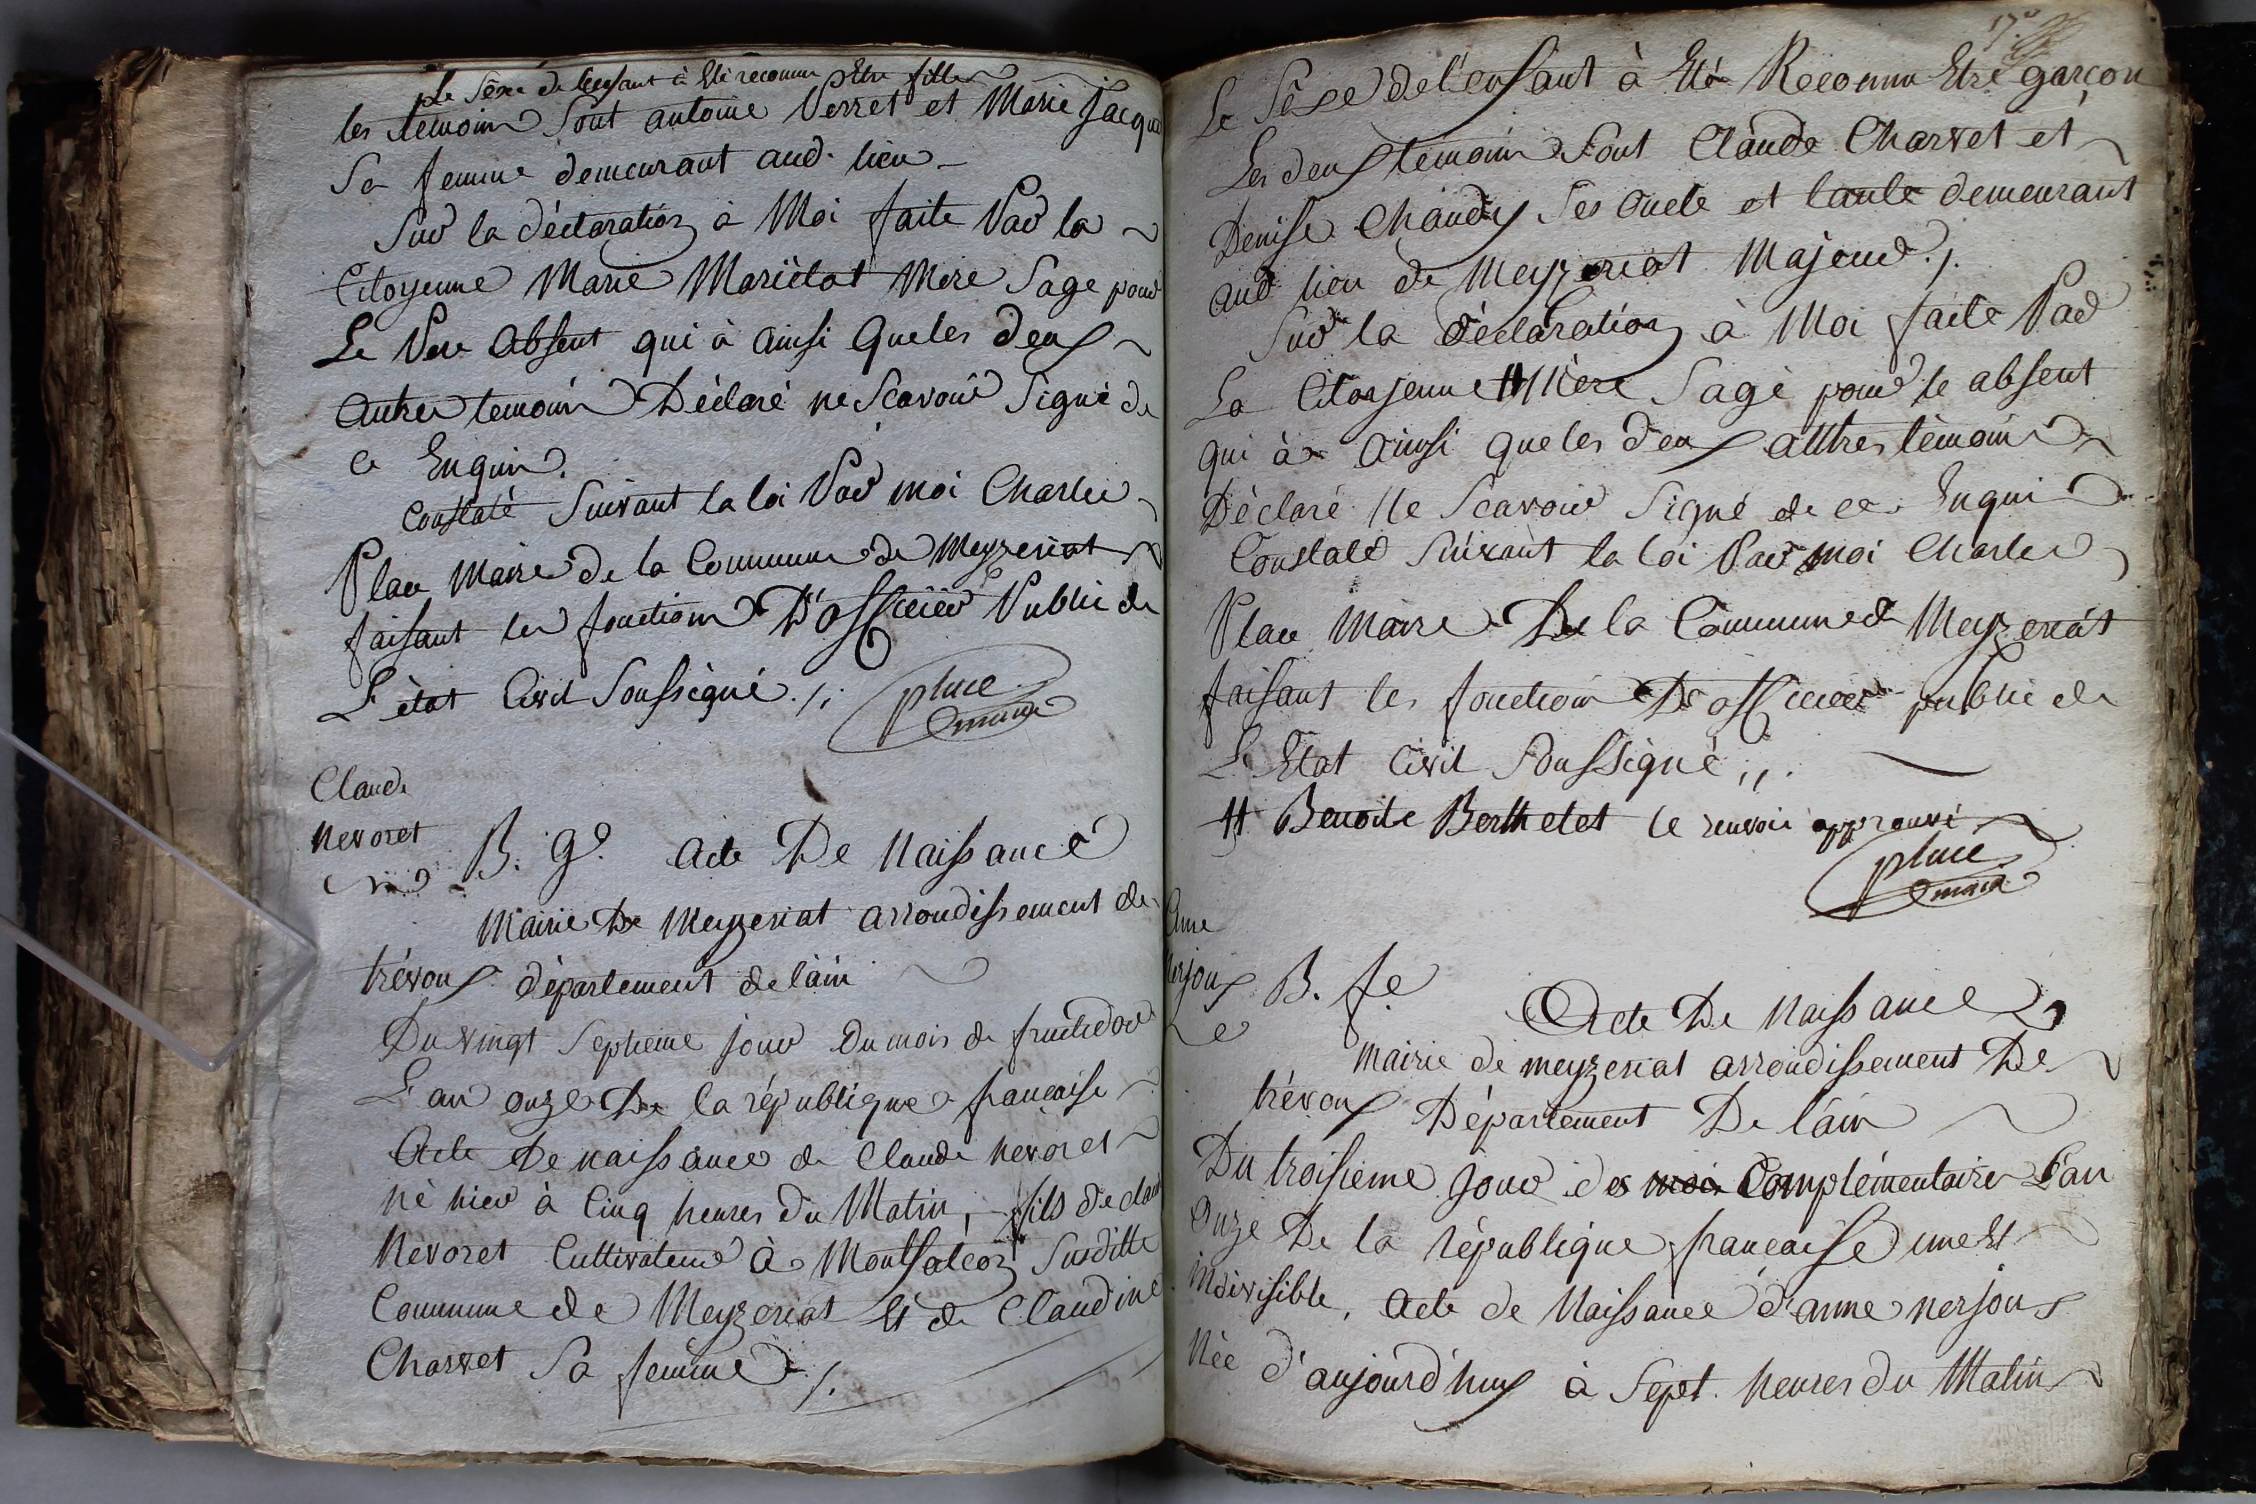 Le Sexe de l'enfant à Eté reconnu Etre fille
les temoins Sont antoine Verret et Marie Jacquet
Sa femme demeurant aud. lieu
Sur la déclaration à Moi faite Par la
Citoyenne Marie Mariëlat Mere Sage pour
Le Pere absent qui à ainsi que les deux
autres temoins Déclaré ne Scavoir Signé de
ce Enquis.
Constaté Suivant la loi Par moi Charles
Place Maire de la Commune de Meyzeriat
faisant les fonctions D'officier Public de
L'état Civil Soussigné ./.
place
maire
Claude
Nevoret
B. g.
acte De Naissance
Mairie De Meyzeriat arrondissement de
trévoux département de l'ain
Du vingt Septieme jour Du mois de fructidor
L'an onze De la république française
Acte De naissance de Claude nevoret
né hier à Cinq heures Du Matin, fils de claude
Nevoret Cultivateur à Montfalcon Susditte
Commune de Meyzeriat Et de Claudine
Charvet Sa femme ./.
17
Le Sexe de l'enfant à Eté Reconnu Etre garçon
Les deux temoins Sont Claude Charvet et
Denise Chaudy Ses oncle et tante demeurant
aud lieu de Meyzeriat Majeur ./.
Sur la déclaration à Moi faite Par
La Citoyenne # Mère Sage pour le absent
qui à ainsi que les deux auttres témoins
Déclaré Ne Scavoir Signé de ce Enquis
Constaté Suivant la loi Par moi Charles
Place Maire De la Commune de Meyzeriat
faisant les fonctions D'officier public de
L'Etat Civil Soussigné ,,.
# Benoite Berthelet le renvoie approuvé
place
maire
Anne
Nerjoux
B. fe
Acte De Naissance
Mairie de meyzeriat arrondissement De
trévoux Département De l'ain
Du troisieme Jour des mois Complémentaires L'an
onze De la république française une Et
indivisible, acte de Naissance d'anne nerjoux
Née d'aujourd'huy à Sept heures du Matin